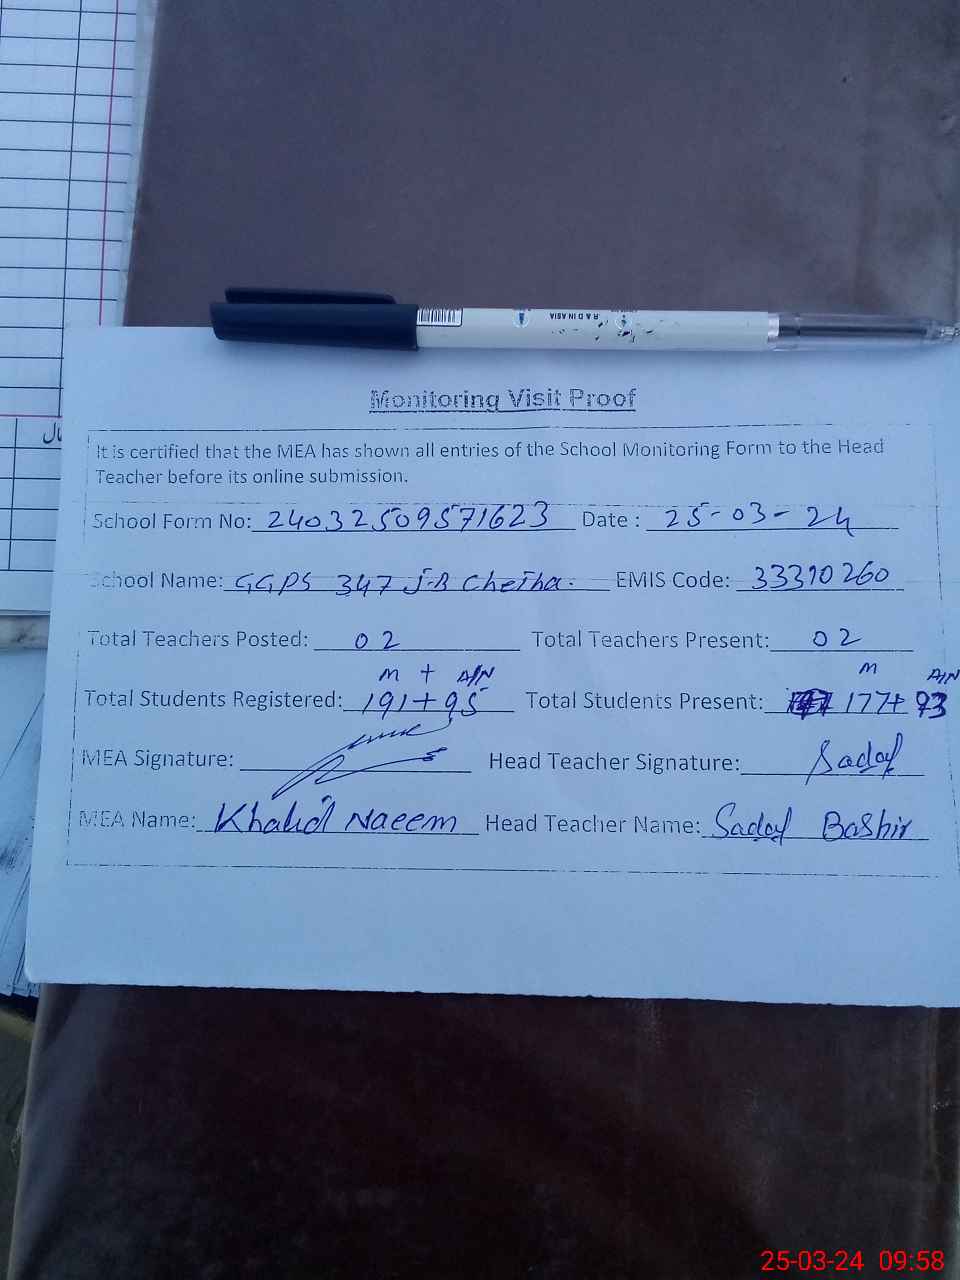 R & D IN ASIA
ال
Monitoring Visit Proof
It is certified that the MEA has shown all entries of the School Monitoring Form to the Head
Teacher before its online submission.
School Form No: 24032509571623 Date : 25-03-24
School Name: GGPS 347 J-B Chetha. EMIS Code: 33310260
Total Teachers Posted: 02 Total Teachers Present: 02
M + A/N M A/N
Total Students Registered: 191+95 Total Students Present: 177+93
MEA Signature: Head Teacher Signature: Sadaf
MEA Name: Khalid Naeem Head Teacher Name: Sadaf Bashir
25-03-24 09:58